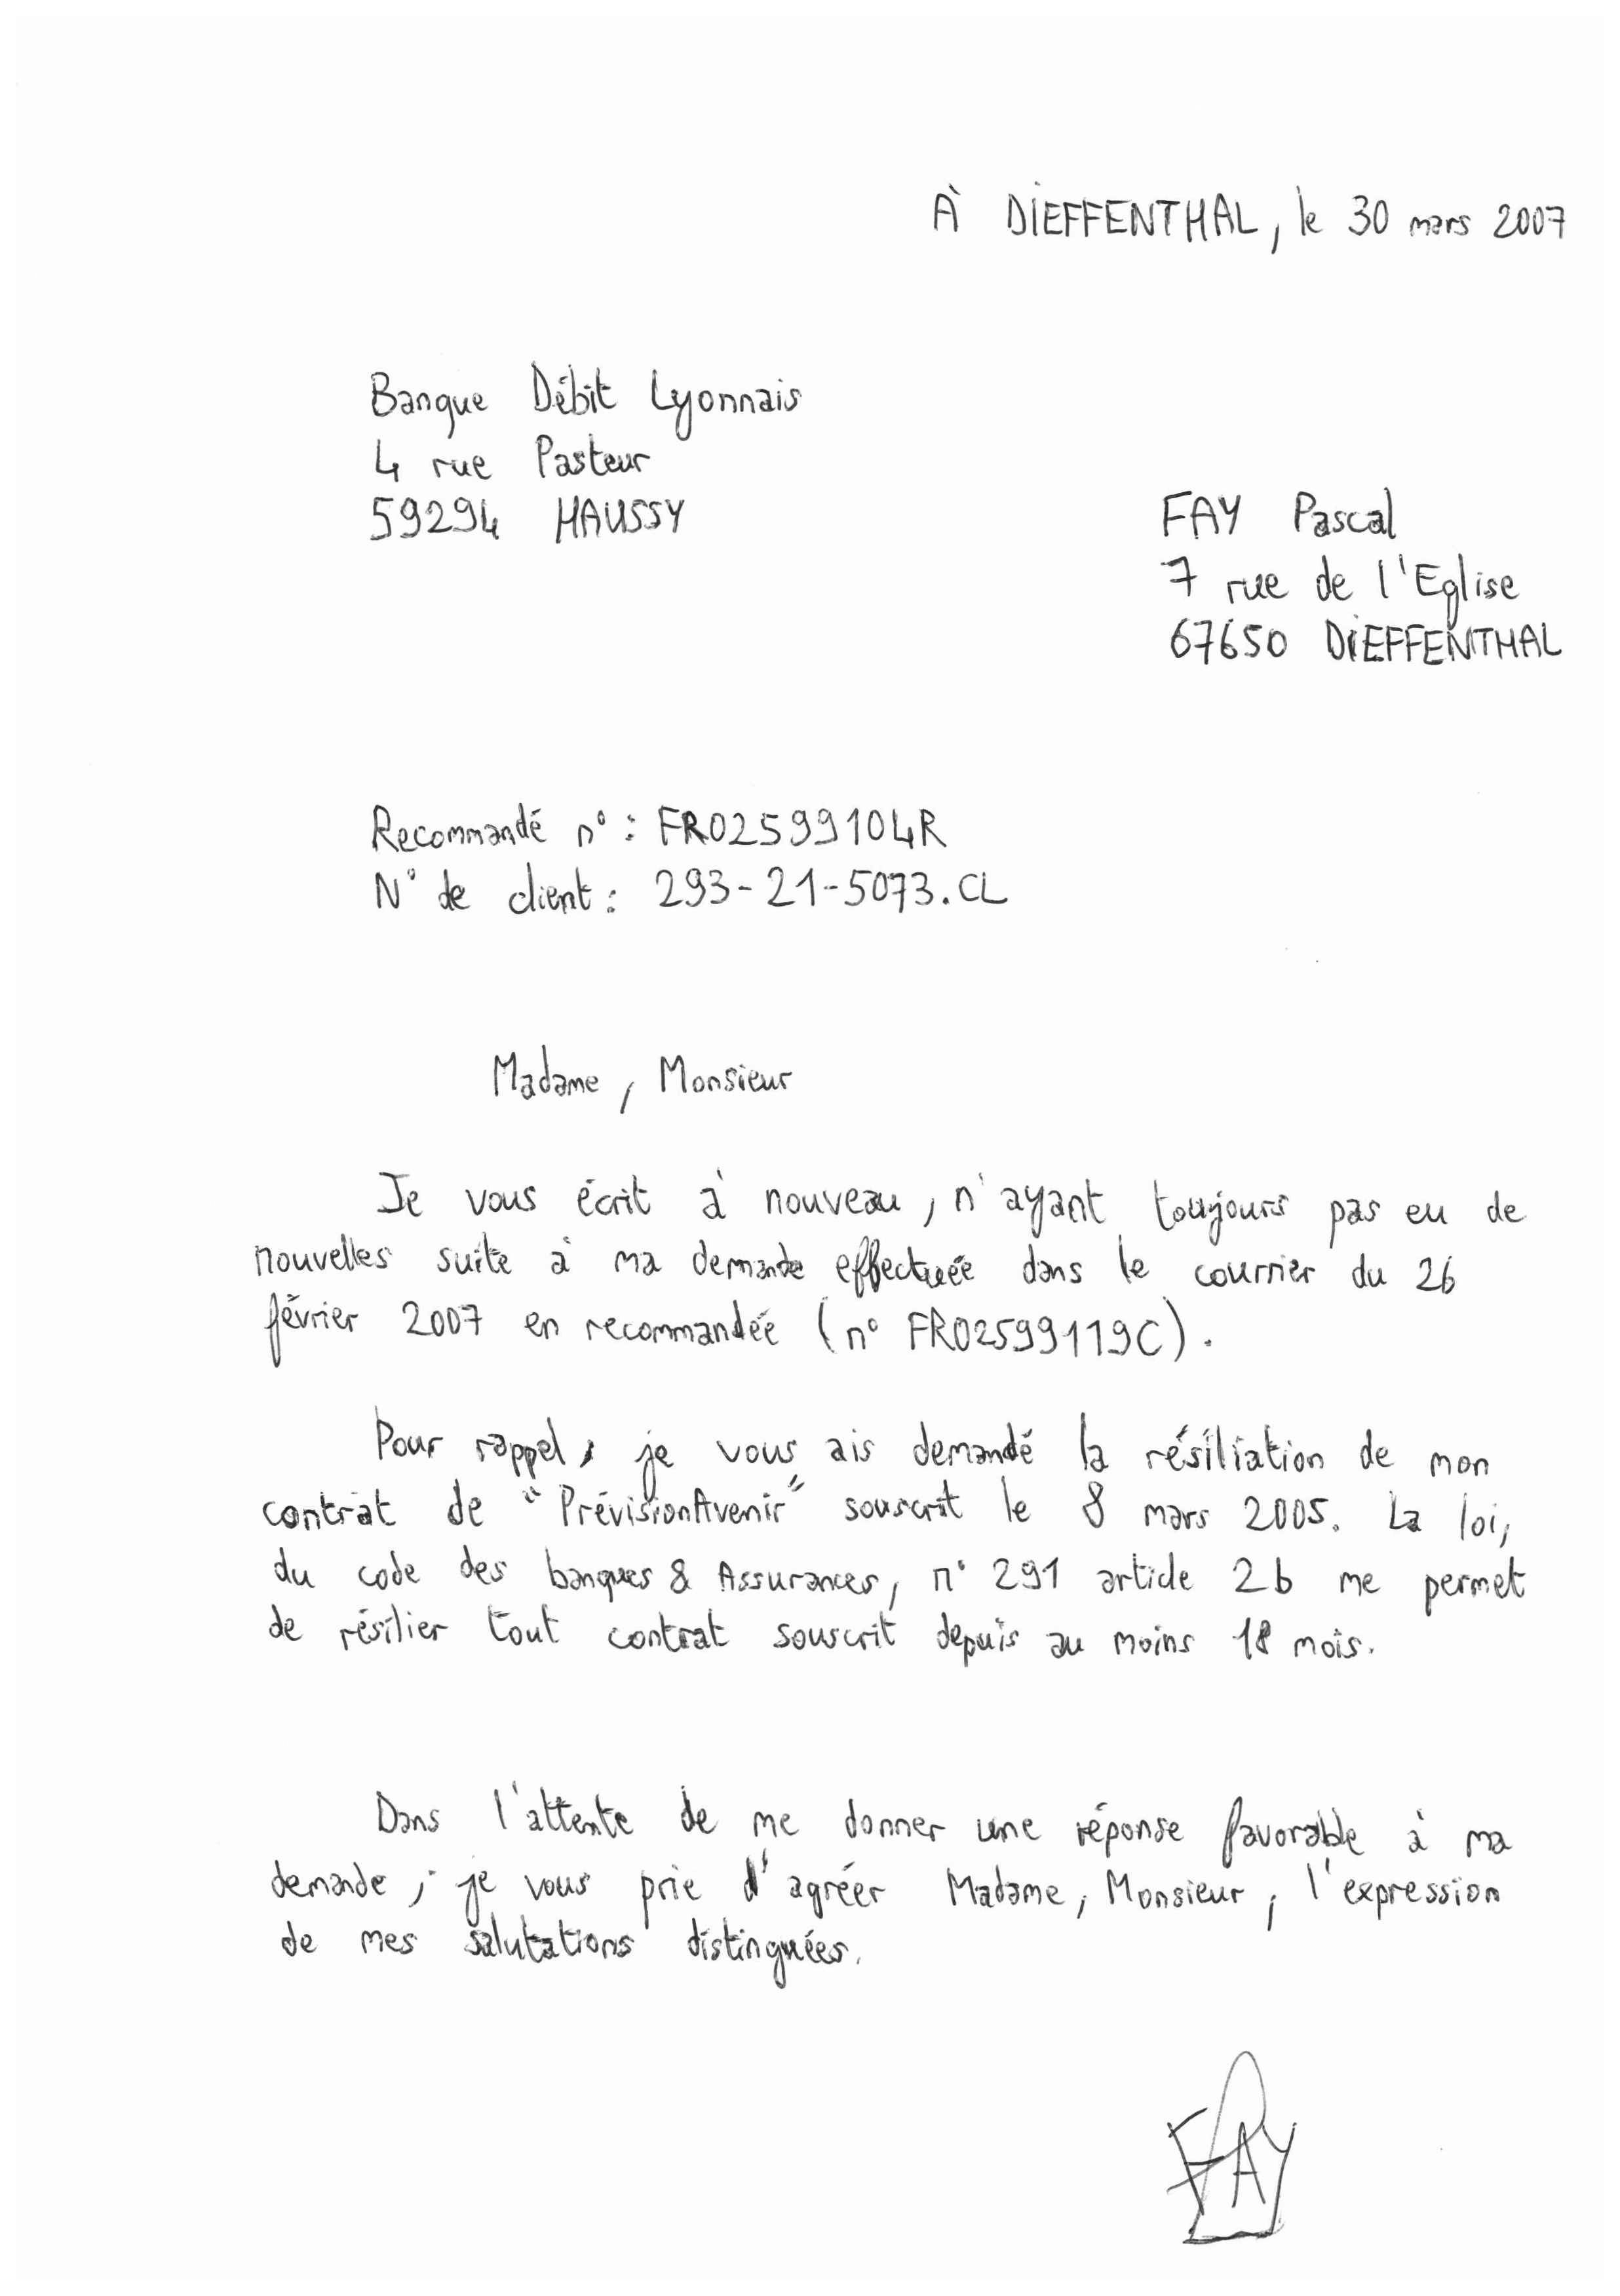 À DIEFFENTHAL, le 30 mars 2007
Banque Débit Lyonnais
4 rue Pasteur
59294 HAUSSY
FAY Pascal
7 rue de l'Eglise
67650 DIEFFENTHAL
Recommandé n° : FR02599104R
N° de client : 293-21-5073.CL
Madame, Monsieur
Je vous écrit à nouveau, n'ayant toujours pas eu de
nouvelles suite à ma demande effectuée dans le courrier du 26
février 2007 en recommandée (n° FR02599119C).
Pour rappel, je vous ais demandé la résiliation de mon
contrat de "PrévisionAvenir" souscrit le 8 mars 2005. La loi,
du code des banques & Assurances, n° 291 article 2b me permet
de résilier tout contrat souscrit depuis au moins 18 mois.
Dans l'attente de me donner une réponse favorable à ma
demande, je vous prie d'agréer Madame, Monsieur, l'expression
de mes salutations distinguées.
FAY